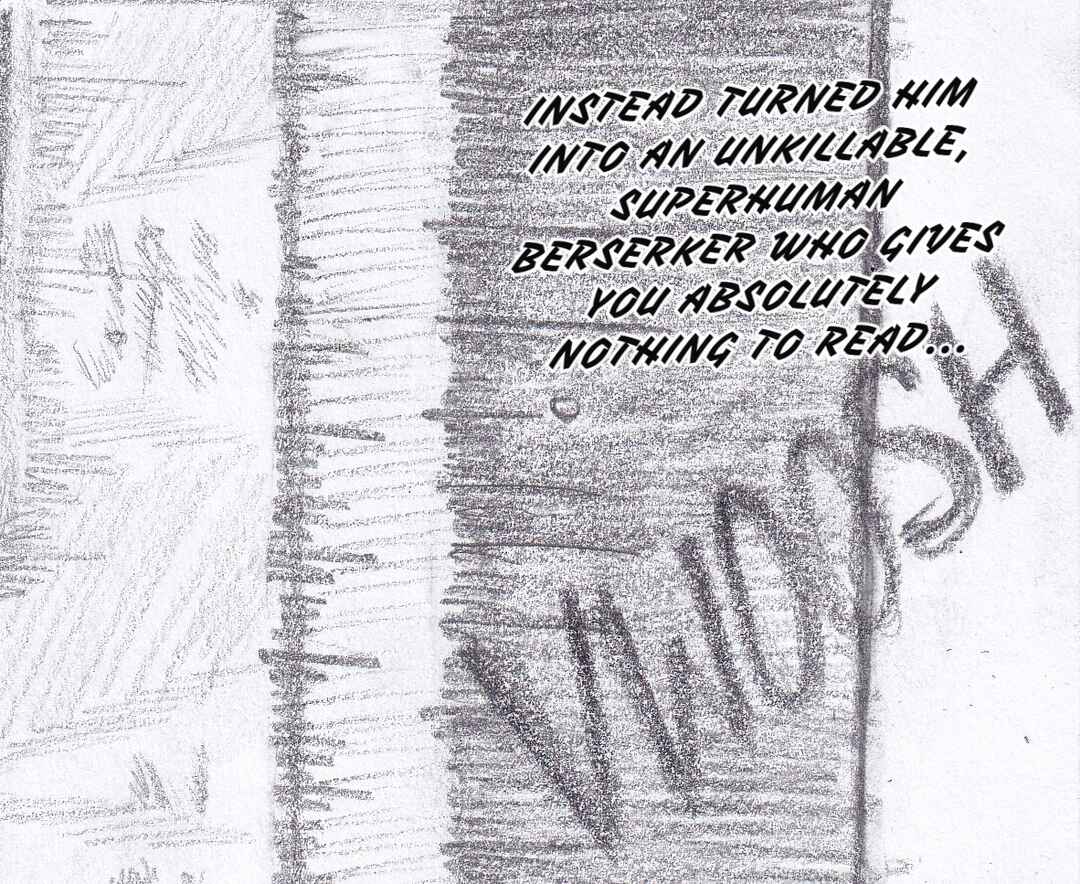 INSTEAD TURNED HIM
INTO AN UNKILLABLE,
SUPERHUMAN
BERSERKER WHO GIVES
YOU ABSOLUTELY
NOTHING TO READ...
WHOOSH